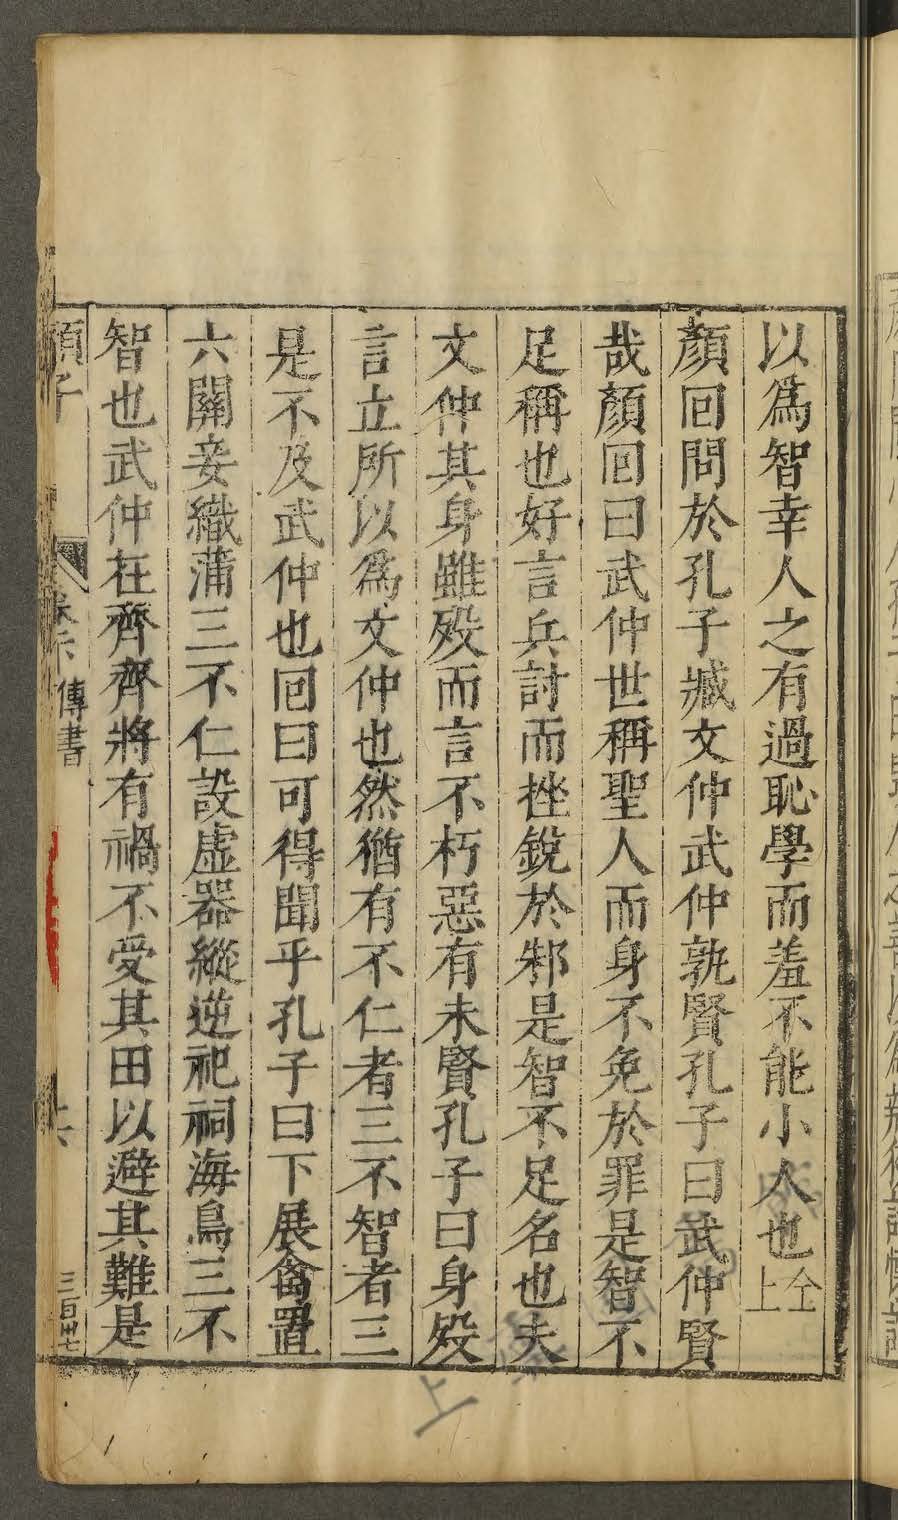 以爲智幸人之有過恥學而羞不能小人也仝上
顏回問於孔子臧文仲武仲孰賢孔子曰武仲賢
哉顏回曰武仲世稱聖人而身不免於罪是智不
足稱也好言兵討而挫銳於邾是智不足名也夫
文仲其身雖歿而言不朽惡有未賢孔子曰身歿
言立所以爲文仲也然猶有不仁者三不智者三
是不及武仲也回曰可得聞乎孔子曰下展禽置
六關妾織蒲三不仁設虛器縱逆祀祠海鳥三不
智也武仲在齊齊將有禍不受其田以避其難是
顏子 傳書 三百卅七